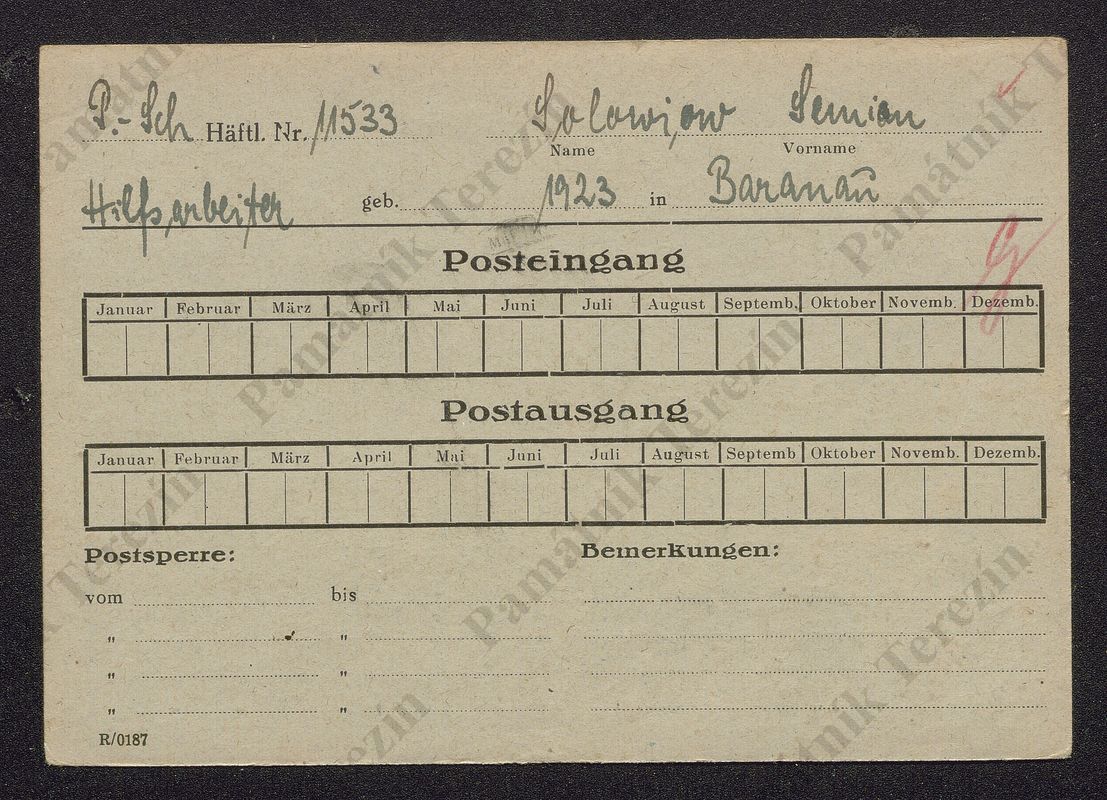 P.-Sch Häftl. Nr. 11533 Solowjow Semion
Name Vorname
Hilfsarbeiter geb. 1923 in Baranau
Posteingang
Januar Februar März April Mai Juni Juli August Septemb. Oktober Novemb. Dezemb.
Postausgang
Januar Februar März April Mai Juni Juli August Septemb Oktober Novemb. Dezemb.
Postsperre: Bemerkungen:
vom bis
" "
" "
" "
R/0187
Památník Terezín